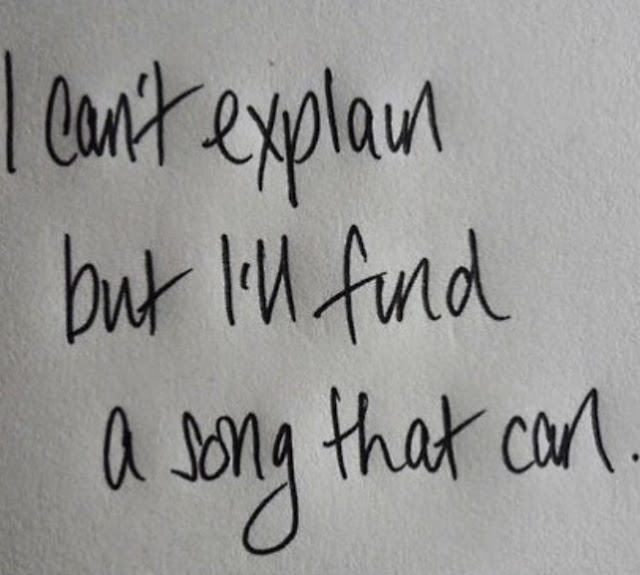 I can't explain
but I'll find
a song that can.